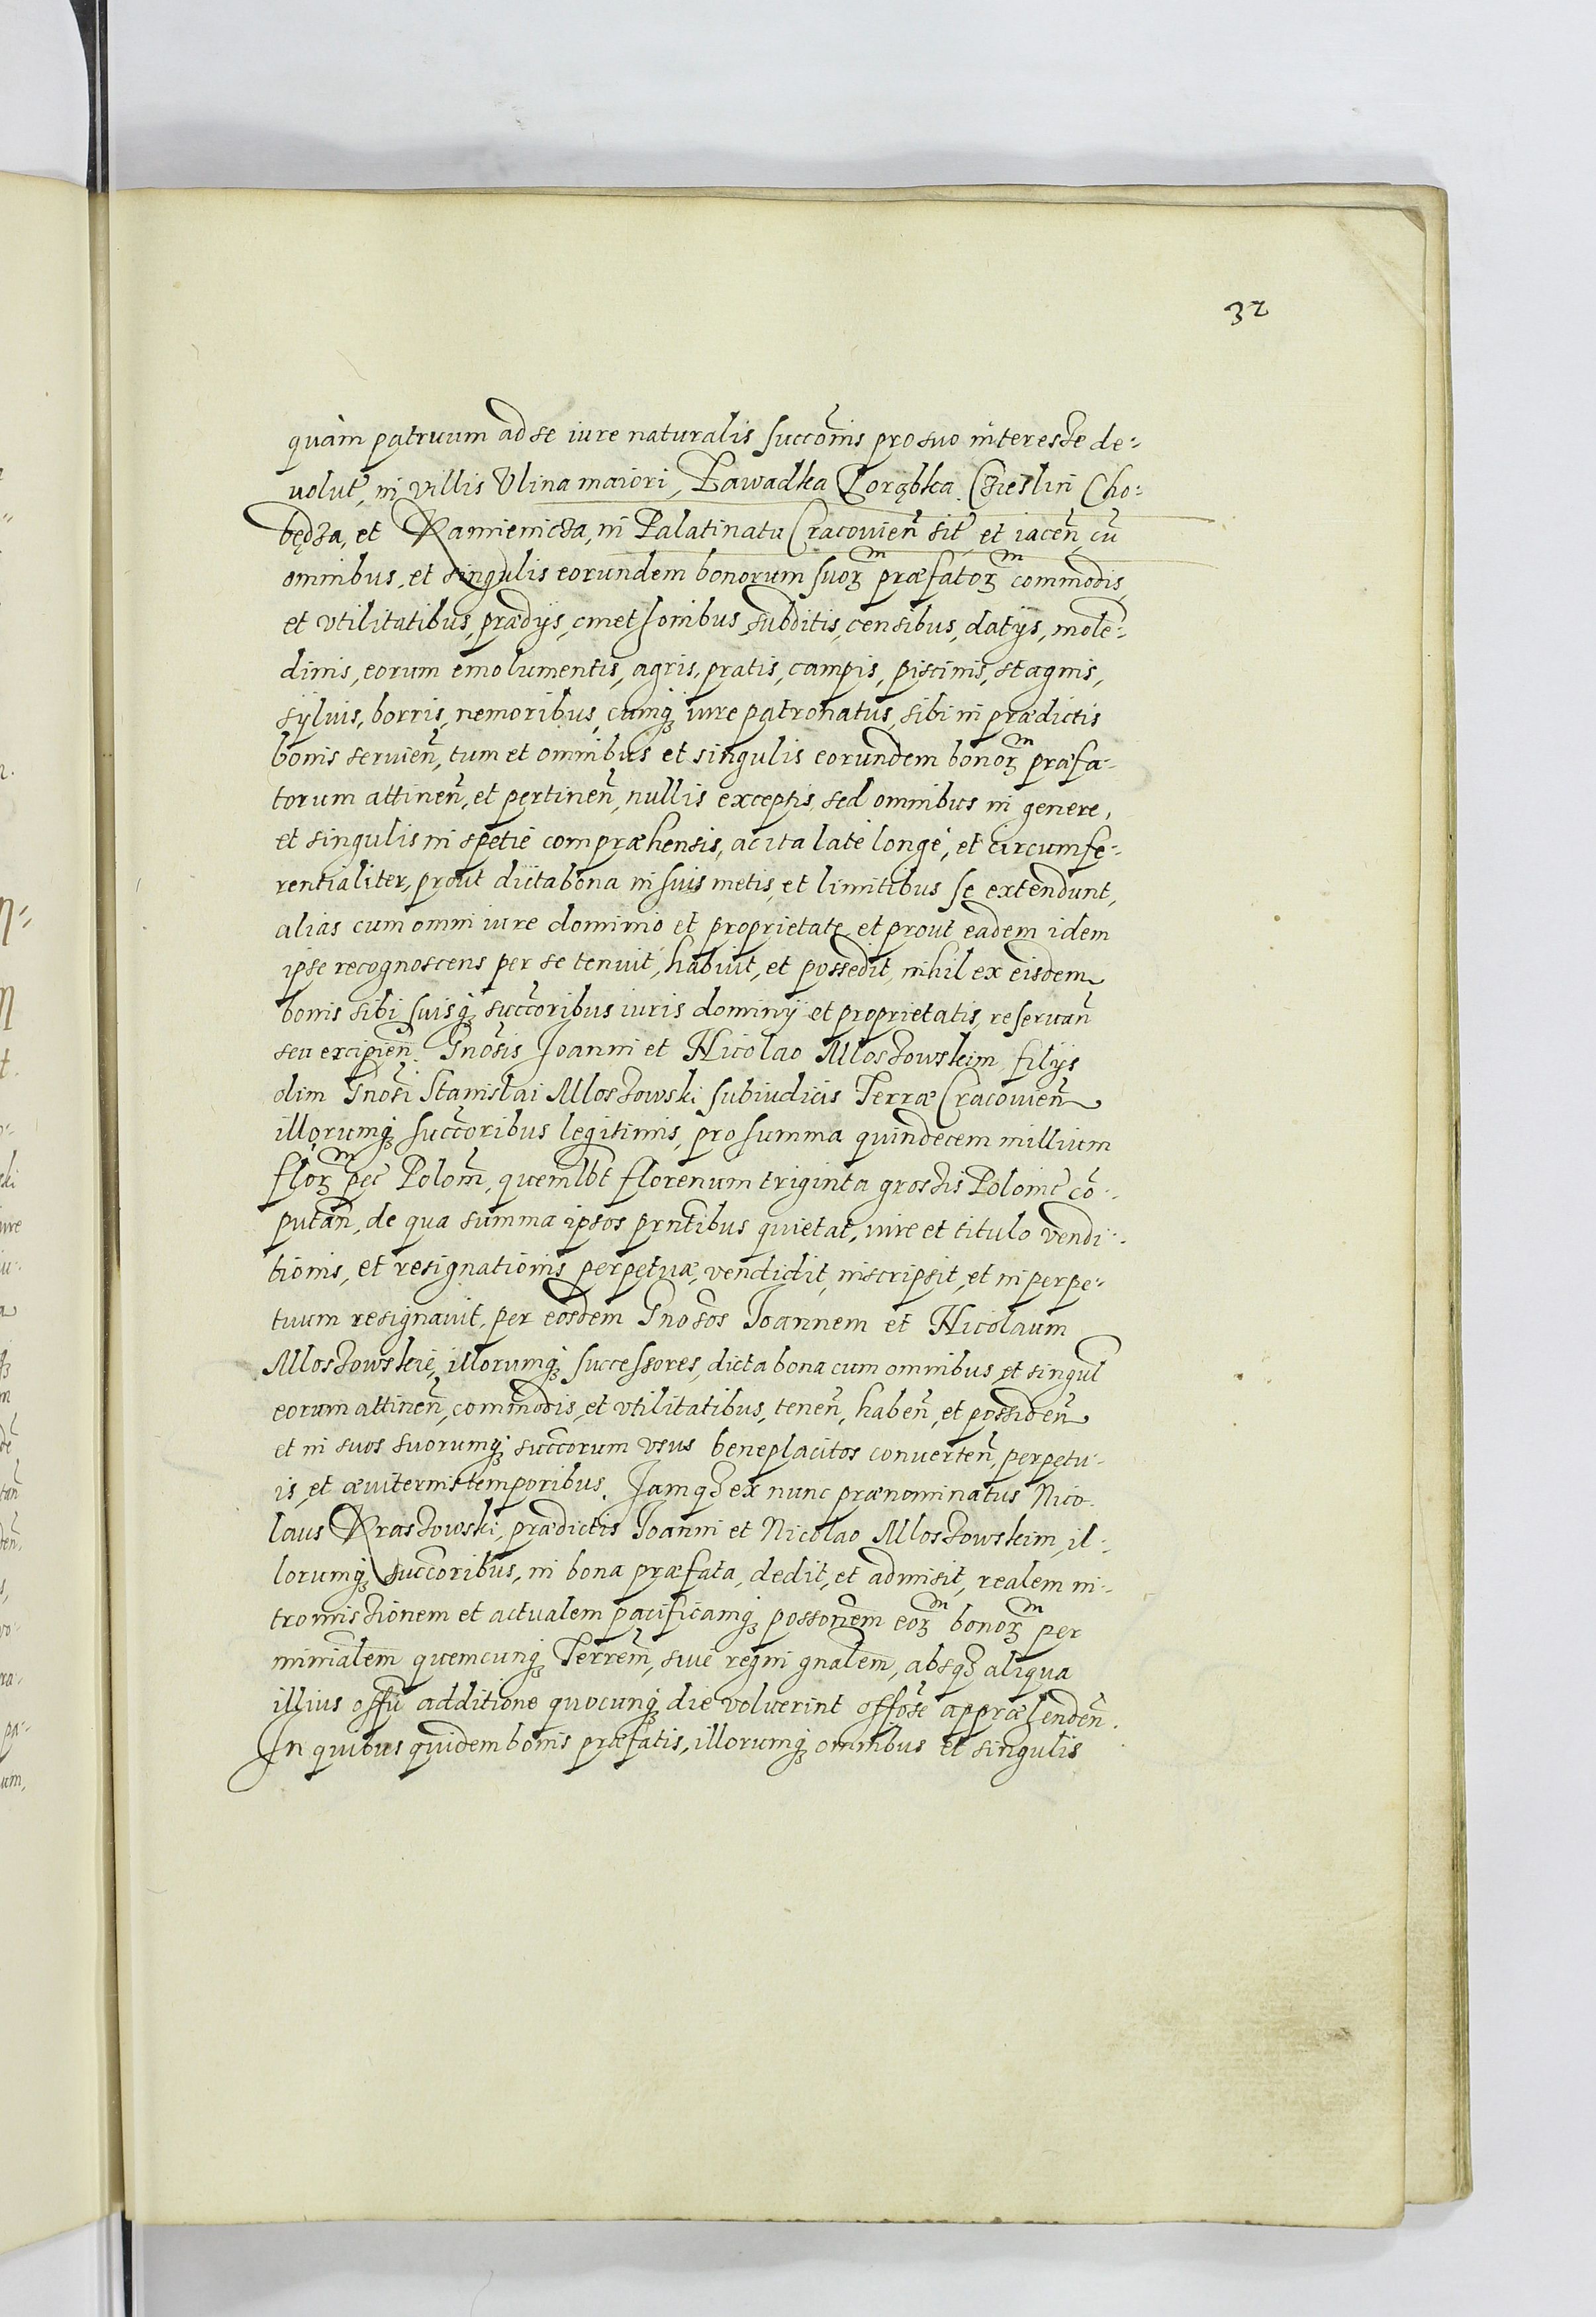 32
quàm patruum ad se iure naturalis succõnis pro suo interesse de:
uolut̃, in villis Vlina maiori, Zawadka Porąbka. Czieslin Cho:
będza, et Kamienicza, in Palatinatu Cracouien̄ sit̃ et iacen̄, cũ
omnibus, et singulis eorundem bonorum suorꝫᵐ præfatorꝫᵐ commodis,
et vtilitatibus, prædijs, cmethonibus subditis, censibus, datijs, molẽ:
dinis, eorum emolumentis, agris, pratis, campis, piscinis, stagnis,
syluis, borris, nemoribus, cumqꝫ iure patronatus, sibi in prædictis
bonis seruien̄, tum et omnibus et singulis eorundem bonorꝫᵐ præfa:
torum attinen̄, et pertinen̄, nullis exceptis, sed omnibus in genere,
et singulis in spetie compræhensis, ac ita latè longè, et circumfe:
rentialiter, prout dicta bona in suis metis, et limitibus se extendunt,
alias cum omni iure dominio et proprietate, et prout eadem idem
ipse recognoscens per se tenuit, habuit, et possedit, nihil ex eisdem
bonis sibi suisqꝫ succoribus iuris dominij et proprietatis reseruan̄
seu excipien̄. Gnosis Joanni et Nicolao Mloszowskim filijs
olim Gnosi Stanislai Mloszowski subiudicis Terræ Cracouien̄
illorumqꝫ succoribus legitimis, pro summa quindecem millium
florꝫᵐ pec̃ Polom̃, quemlbt florenum triginta grossis Polonic̃ cõ:
putan̄, de qua summa ipsos prntibus quietat, iure et titulo vendi:
tionis, et resignationis perpetuæ, vendidit, inscripsit, et in perpe:
tuum resignauit, per eosdem Gnosos Joannem et Nicolaum
Mloszowskie, illorumqꝫ successores, dicta bona cum omnibus, et singul̃
eorum attinen̄, commodis, et vtilitatibus, tenen̄, haben̄, et possiden̄
et in suos suorumqꝫ succorum vsus beneplacitos conuerten̄, perpetu:
is, et æuiternis temporibus. Jamqꝫ ex nunc prænominatus Nico:
laus Kraszowski, prædictis Joanni et Nicolao Mloszowskim, il:
lorumqꝫ succoribus, in bona præfata, dedit, et admisit, realem in:
tromissionem et actualem pacificamqꝫ possonem eorꝫᵐ bonorꝫᵐ per
minialem quemcunqꝫ Terrem̃, siue regni gnalem, absqꝫ aliqua
illius offij additione quocunqꝫ die voluerint offose appræhenden̄.
In quibus quidem bonis præfatis, illorumqꝫ omnibus et singulis